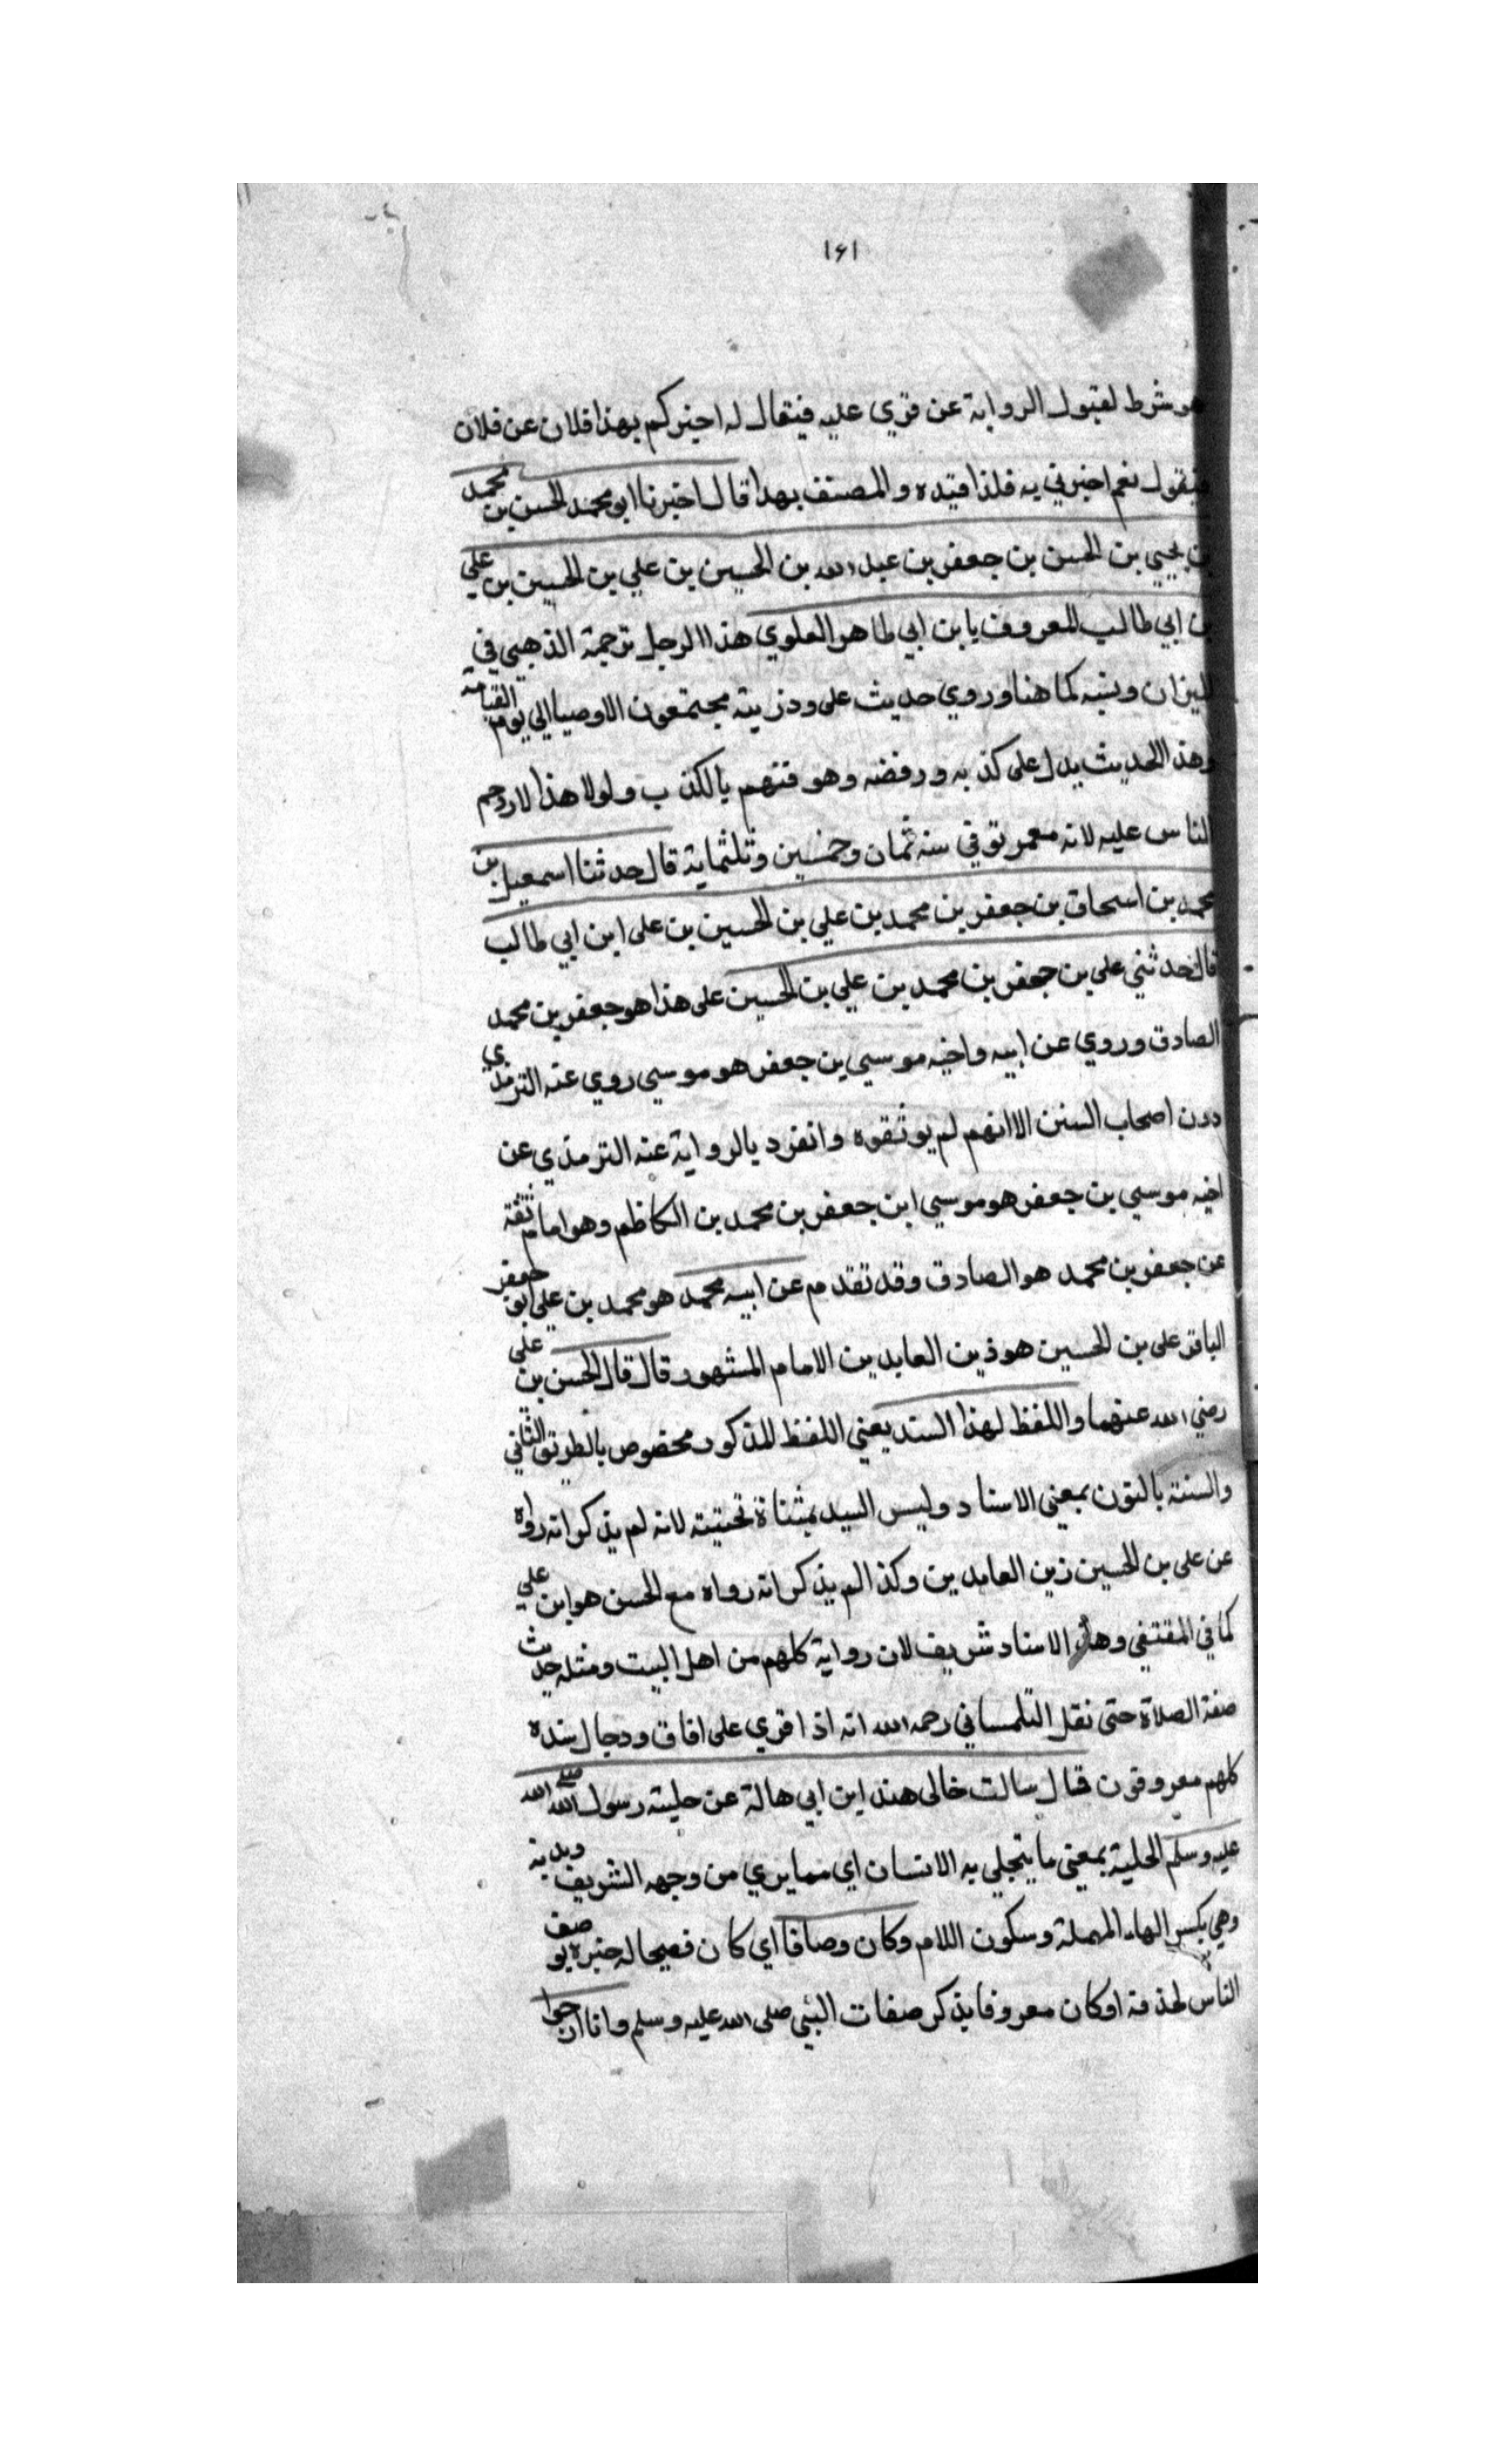 ١٦١
هو شرط لقبول الرواية عن قري عليه فيقال له اخبركم بهذا فلان عن فلان
فيقول نعم اخبرني به فلذا قيده والمصنف بهذا قال اخبرنا ابو محمد الحسن بن محمد
بن يحيي بن الحسن بن جعفر بن عبد الله بن الحسين بن علي بن الحسين بن علي
بن ابي طالب المعروف بابن ابي طاهر العلوي هذا الرجل ترجمة الذهبي في
الميزان ونسبه كما هنا وروي حديث على وذريته يجتمعون الاوصيا الي يوم القيامة
وهذا الحديث يدل على كذبه ورفضه وهو متهم بالكذب ولولا هذا لازدحم
الناس عليه لانه معمر توفي سنه ثمان وخمسين وثلثماية قال حدثنا اسمعيل بن
محمد بن اسحاق بن جعفر بن محمد بن علي بن الحسين بن على ابن ابي طالب
قال حدثني على بن جعفر بن محمد بن علي بن الحسين على هذا هو جعفر بن محمد
الصادق وروي عن ابيه واخيه موسي بن جعفر هو موسي روي عنه الترمذي
دون اصحاب السنن الا انهم لم يوثقوه وانفرد بالرواية عنه الترمذي عن
اخيه موسي بن جعفر هو موسي ابن جعفر بن محمد بن الكاظم وهو امام ثقة
عن جعفر بن محمد هو الصادق وقد تقدم عن ابيه محمد هو محمد بن علي ابو جعفر
الباقر على بن الحسين هو زين العابدين الامام المشهور قال قال الحسن بن على
رضي الله عنهما واللفظ لهذا السند يعني اللفظ المذكور مخصوص بالطريق الثاني
والسند بالنون بمعني الاسناد وليس السيد بمثناة تحتيته لانه لم يذكر انه رواه
عن على بن الحسين زين العابدين وكذا لم يذكر انه رواه مع الحسن هو ابن علي
كما في المقتفي وهذا الاسناد شريف لان رواية كلهم من اهل البيت ومثله حديث
صفة الصلاة حتى نقل التلمساني رحمه الله انه اذا قري على افاق ورجال سنده
كلهم معروفون قال سالت خالى هند ابن ابي هالة عن حلية رسول الله صلى الله
عليه وسلم الحلية بمعني ما يتجلي به الانسان اي مما يري من وجهه الشريف وبدنه
وهي بكسر الهاء المهملة وسكون اللام وكان وصافا اي كان فصيحا له خبرة يوصف
الناس لحذقه او كان معروفا بذكر صفات النبي صلى الله عليه وسلم وانا ارجوا